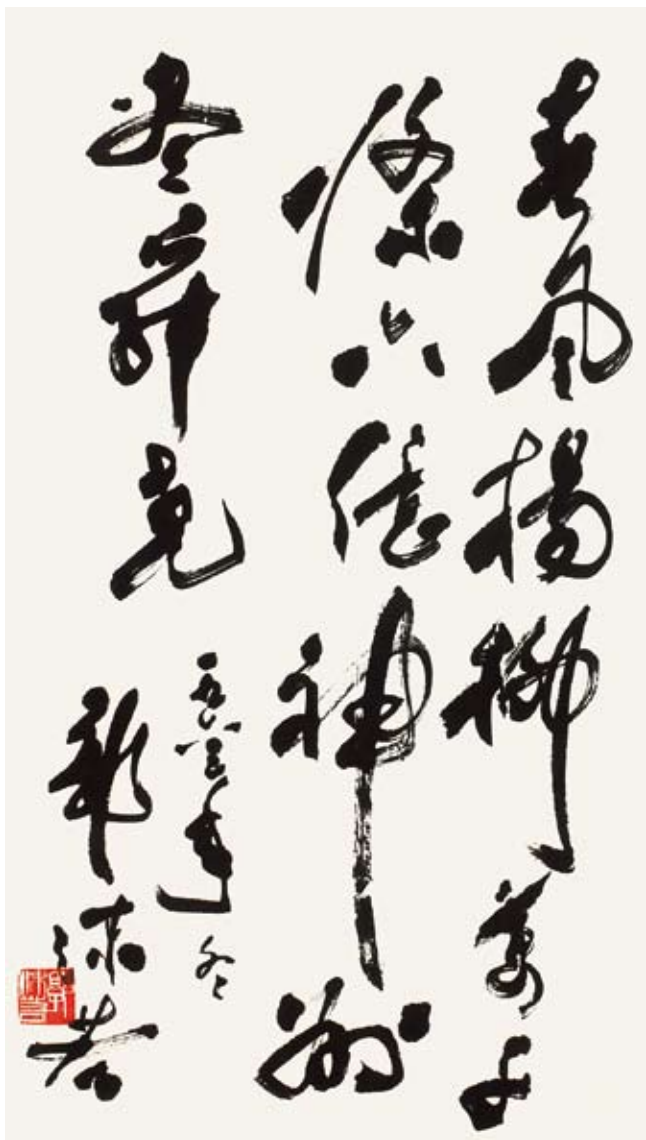 春風楊柳萬千
條六億神州
盡舜堯
年冬
郭沫若